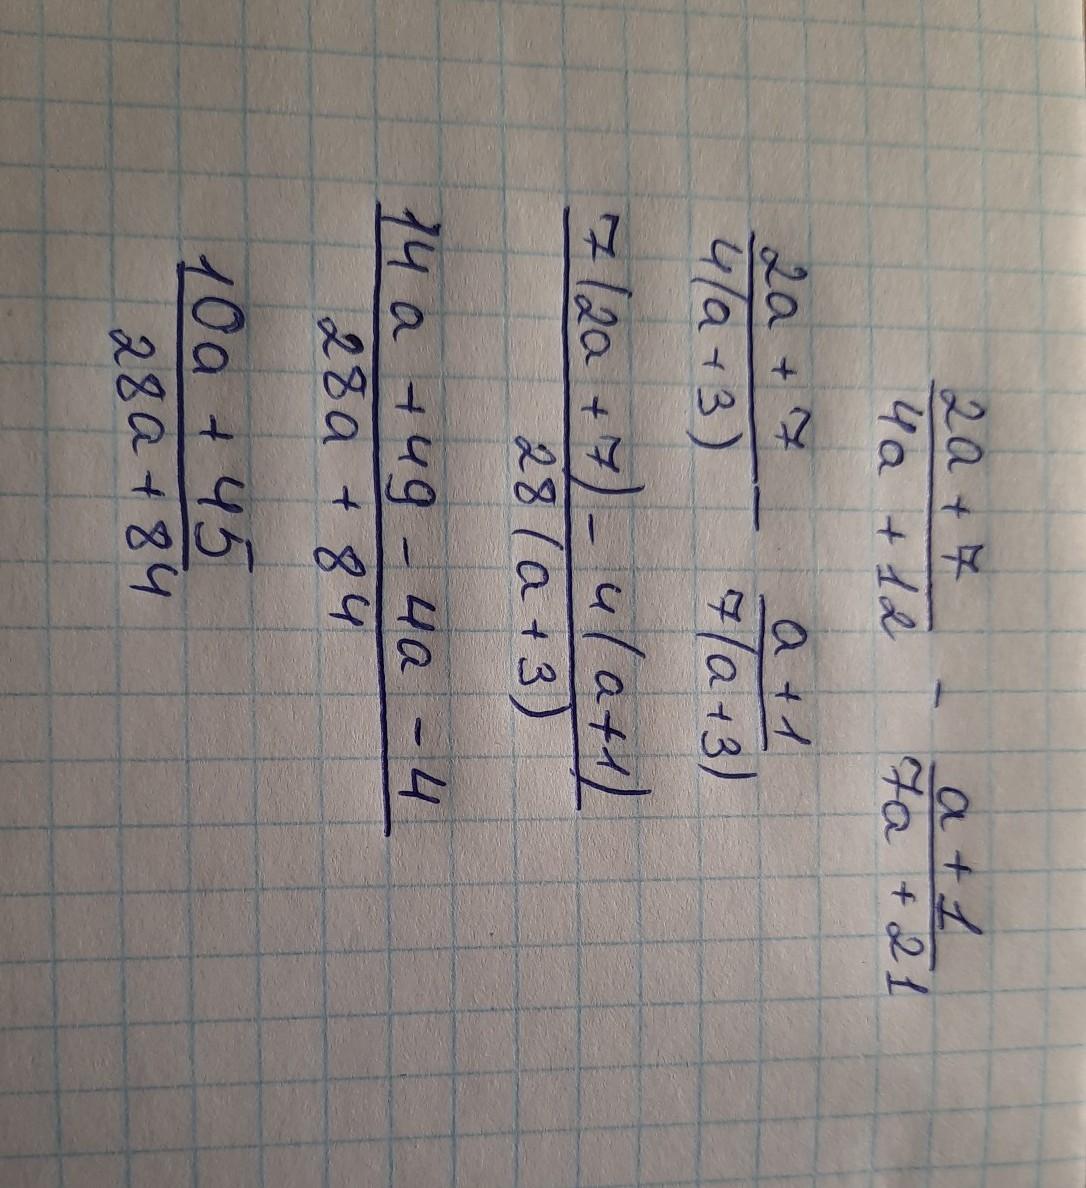 2a + 7 - a + 1
4a + 12 7a + 21
2a + 7 - a + 1
4(a + 3) 7(a + 3)
7(2a + 7) - 4(a + 1)
28(a + 3)
14a + 49 - 4a - 4
28a + 84
10a + 45
28a + 84